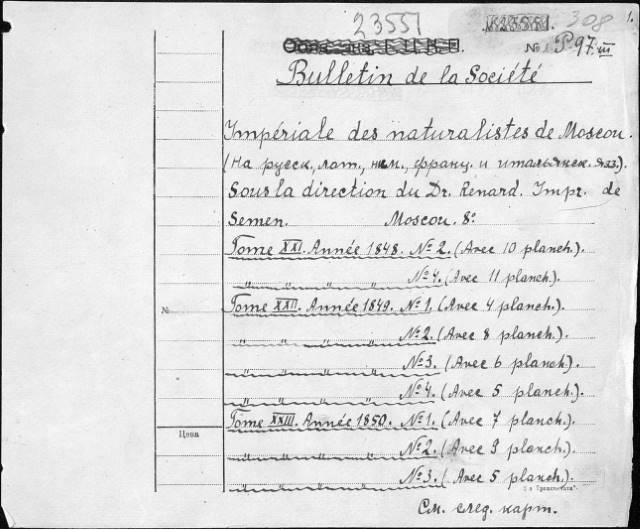 23551 308 1.
№ P.97.III
Bulletin de la Société
Impériale des naturalistes de Moscou.
(На русск., лат., нѣм., франц. и итальянск. яз.).
Sous la direction du Dr. Renard. Impr. de
Semen. Moscou. 8°
Tome XXI. Année 1848. №2. (Avec 10 planch.).
" " " " №4. (Avec 11 planch.).
№ Tome XXII. Année 1849. №1. (Avec 4 planch.).
" " " " №2. (Avec 8 planch.).
" " " " №3. (Avec 6 planch.).
" " " " №4. (Avec 5 planch.).
Tome XXIII. Année 1850. №1. (Avec 7 planch.).
Цена
" " " " №2. (Avec 9 planch.).
" " " " №3. (Avec 5 planch.).
См. след. карт.